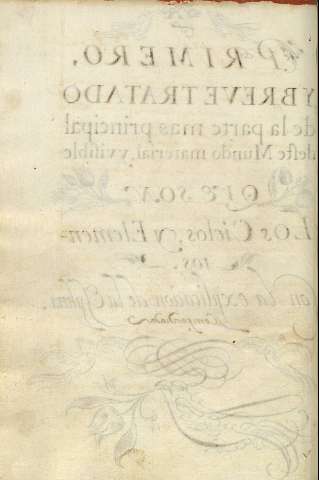 PRIMERO.
Y BREVE TRATADO
de la parte mas principal
deste Mundo material, y visible
QUE SON
LOS Cielos, y Elemen-
tos.
con la explicacion de la Esfera.